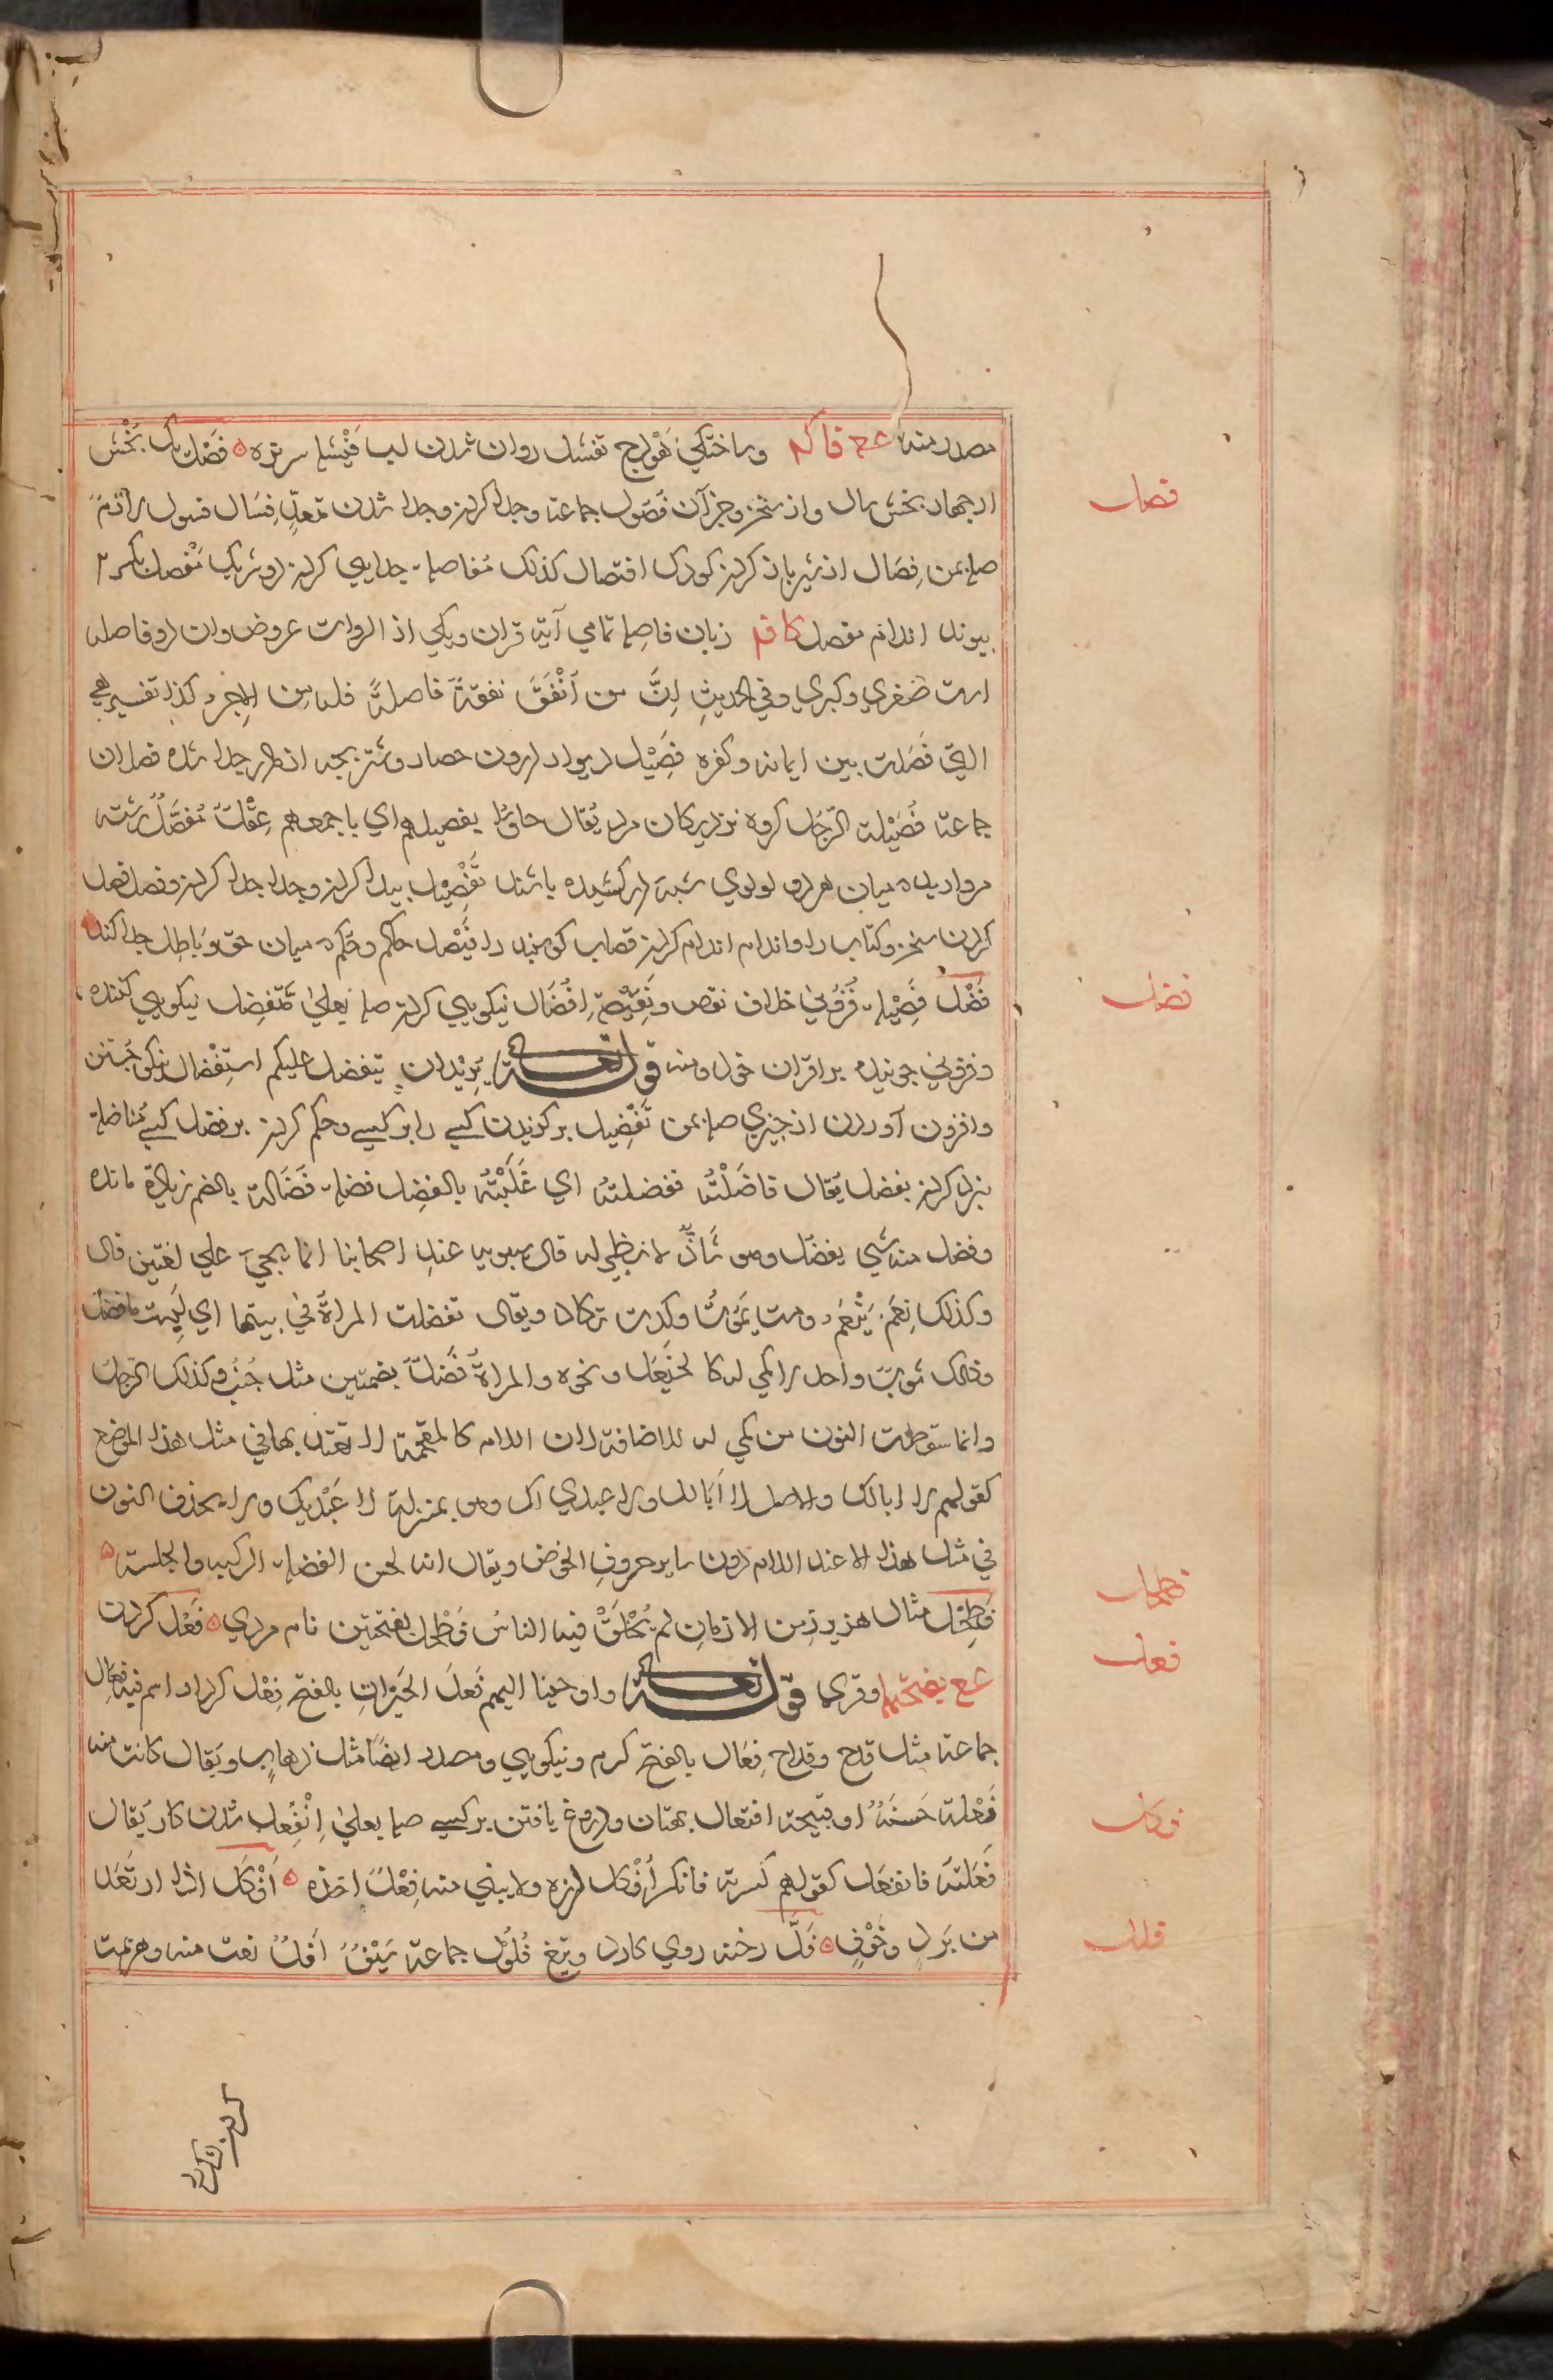 مصدر منه ع ع فا که و ساختگی هَوْدج تفسّل روان شدن لب فَيْشلة سرنره ه فَصْل یک بخش
فصل
از چهار بخش سال و از سخن و جز آن فُصُول جماعة و جدا کردن و جدا شدن
صلة بمن فِصَال از شیر باز کردن کودک افتصال کذلک مُفاصلة جدایی کردن دو شریک مَفْصِل یکسر
پیوند اندام مفصل کا فه زبان فاصلة تمامی آیة قران ویکی از ادوات عروض وان دو فاصله
است صُغری وکبری وفی الحدیثِ اِنَّ من اَنْفَقَ نفقةً فاصلةً فله مِن الاجرِ کذا تفسیره هی
التی فَصَلت بین ایمانه وکفره فَصِیْل دیوار درون حصار وشتر بچه از مادر جدا شده فصلان
جماعة فَصِیْلة الرَّجُل گروه نزدیکان مرد یُقال جاؤا بفصیلهم ای باجمعهم عِقْدٌ مُفَصَّلٌ رشته
مروارید که میان هر دو لولوی شبه در کشیده باشند تَفْصِیْل پیدا کردن وجدا جدا کردن وفصل فصل
کردن سخن وکتاب را واندام اندام کردن قصاب گوسپند را فَیْصَل حاکم وحکم که میان حق وباطل جدا کند
فضل
فَضْل فَضِیْلة فُزُونی خلاف نقص ونَقِیْصة اِفْضَال نیکویی کردن صلة بعلیٰ مُتَفَضِّل نیکویی کننده
و فزونی جوینده بر اقران خود ومنه قوله تعالی یُرِیْدان یتفضل علیکم استِفْضَال نیکو جستن
وافزون آوردن از چیزی صلة بمن تَفْضِیل برگزیدن کسی را بر کسی وحکم کردن بر فضل کسی مُفاضلة
نبرد کردن بفضل یُقال فاضَلْتُه ففضلته ای غَلَبْتُه بالفَضِل فضلة فُضَالة بالضم زیادة مانده
وفضل منه شی یفضُل وهو شاذٌّ لانظیر له قال سیبویه عند اصحابنا انما یجیَ علی لغتین قال
وکذلک نِعَم یَنْعُم ومت یَمُوتُ وکِدت تکاد ویقال تفضلت المراةُ فی بیتها ای لَبِست مافضل
وذلک ثوب واحد لاکمی له کا لخَیْعَل ونحوه والمراةُ فُضُلٌ بضمتین مثل جُنُب وکذلک الرجل
وانما سقوطت النون من کمی له للاضافة لان اللام کالمقحمة لا تعتد بها فی مثل هذا الموضع
کقولهم لا ابالک والاصل لا اَبَالک ولا عبدی لک وهو بمنزلة لا عَبْدَیک ولا یحذف النون
فی مثل هذا الا عند اللام دون سایر حروفِ الخفض ویقال انه لحسن الفضلة الرکبه والجلسة ه
فطحل
فِطَحْل مثال هزبر زمن الازمان لم یُخْلَقْ فیه الناسُ فَطْحَل بفتحتین نام مردی ه فَعْل کردن
فعل
ع ع بفتحهما وقری قوله تعالی واوحینا الیهم فَعلَ الخَیْراتِ بالفتح فِعْل کردار اسم فیه فِعَال
جماعة مثل قدح وقداح فَعَال بالفتح کرم ونیکویی ومصدر ایضاً مثل ذهاب ویقال کانت منه
فَعْلة حَسَنَةٌ او قبیحة افتعال بهتان ودروغ بافتن بر کسی صلة بعلیٰ اِنْفِعال شدن کار یُقال
فکل
فَعَلتَه فانفعَل کقولهم کسرته فانکسر اَفْکل لرزه ولایبنی منه فِعْل اخذه ه اَفْکَل اذا ارتَعَد
من بَرد وخَوْفٍ ه فَلّ رخنه روی کارد وتیغ فُلُوْل جماعة سَیْفٌ اَفَلُّ نعت منه وهزیمت
فلل